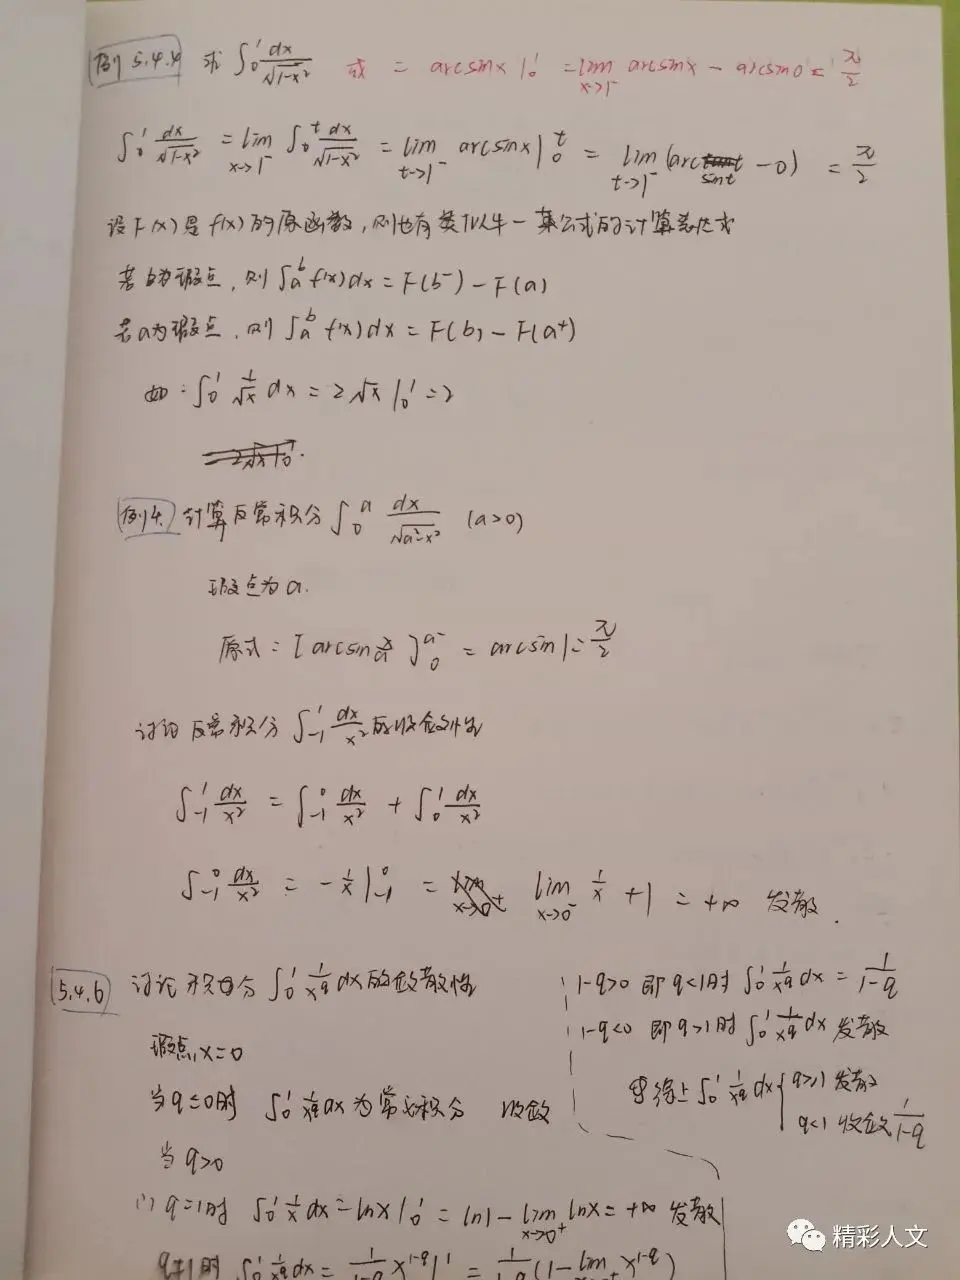 例5.4.4 求 ∫₀¹ dx/√(1-x²) 或 = arcsinx |₀¹ = lim_{x→1⁻} arcsinx - arcsin0 = π/2
∫₀¹ dx/√(1-x²) = lim_{x→1⁻} ∫₀ᵗ dx/√(1-x²) = lim_{t→1⁻} arcsinx |₀ᵗ = lim_{t→1⁻} (arcsint - 0) = π/2
设F(x)是f(x)的原函数,则也有类似牛-莱公式的计算表达式
若b为瑕点,则 ∫ₐᵇ f(x)dx = F(b⁻) - F(a)
若a为瑕点,则 ∫ₐᵇ f(x)dx = F(b) - F(a⁺)
如: ∫₀¹ 1/√x dx = 2√x |₀¹ = 2
例4. 计算反常积分 ∫₀ᵃ dx/√(a²-x²) (a>0)
瑕点为a.
原式 = [arcsin x/a]₀^{a⁻} = arcsin1 = π/2
讨论反常积分 ∫₋₁¹ dx/x² 的收敛性
∫₋₁¹ dx/x² = ∫₋₁⁰ dx/x² + ∫₀¹ dx/x²
∫₋₁⁰ dx/x² = -1/x |₋₁⁰ = lim_{x→0⁻} 1/x + 1 = +∞ 发散.
5.4.6 讨论积分 ∫₀¹ 1/x^q dx 的敛散性
瑕点,x=0
当q≤0时 ∫₀¹ 1/x^q dx 为常义积分 收敛
当q>0
(1) q=1时 ∫₀¹ 1/x dx = lnx |₀¹ = ln1 - lim_{x→0⁺} lnx = +∞ 发散
q≠1时 ∫₀¹ 1/x^q dx = 1/(1-q) x^{1-q} |¹ = 1/(1-q) (1 - lim x^{1-q})
1-q>0 即q<1时 ∫₀¹ 1/x^q dx = 1/(1-q)
1-q<0 即q>1时 ∫₀¹ 1/x^q dx 发散
综上 ∫₀¹ 1/x^q dx { q≥1 发散
q<1 收敛 1/(1-q)
精彩人文